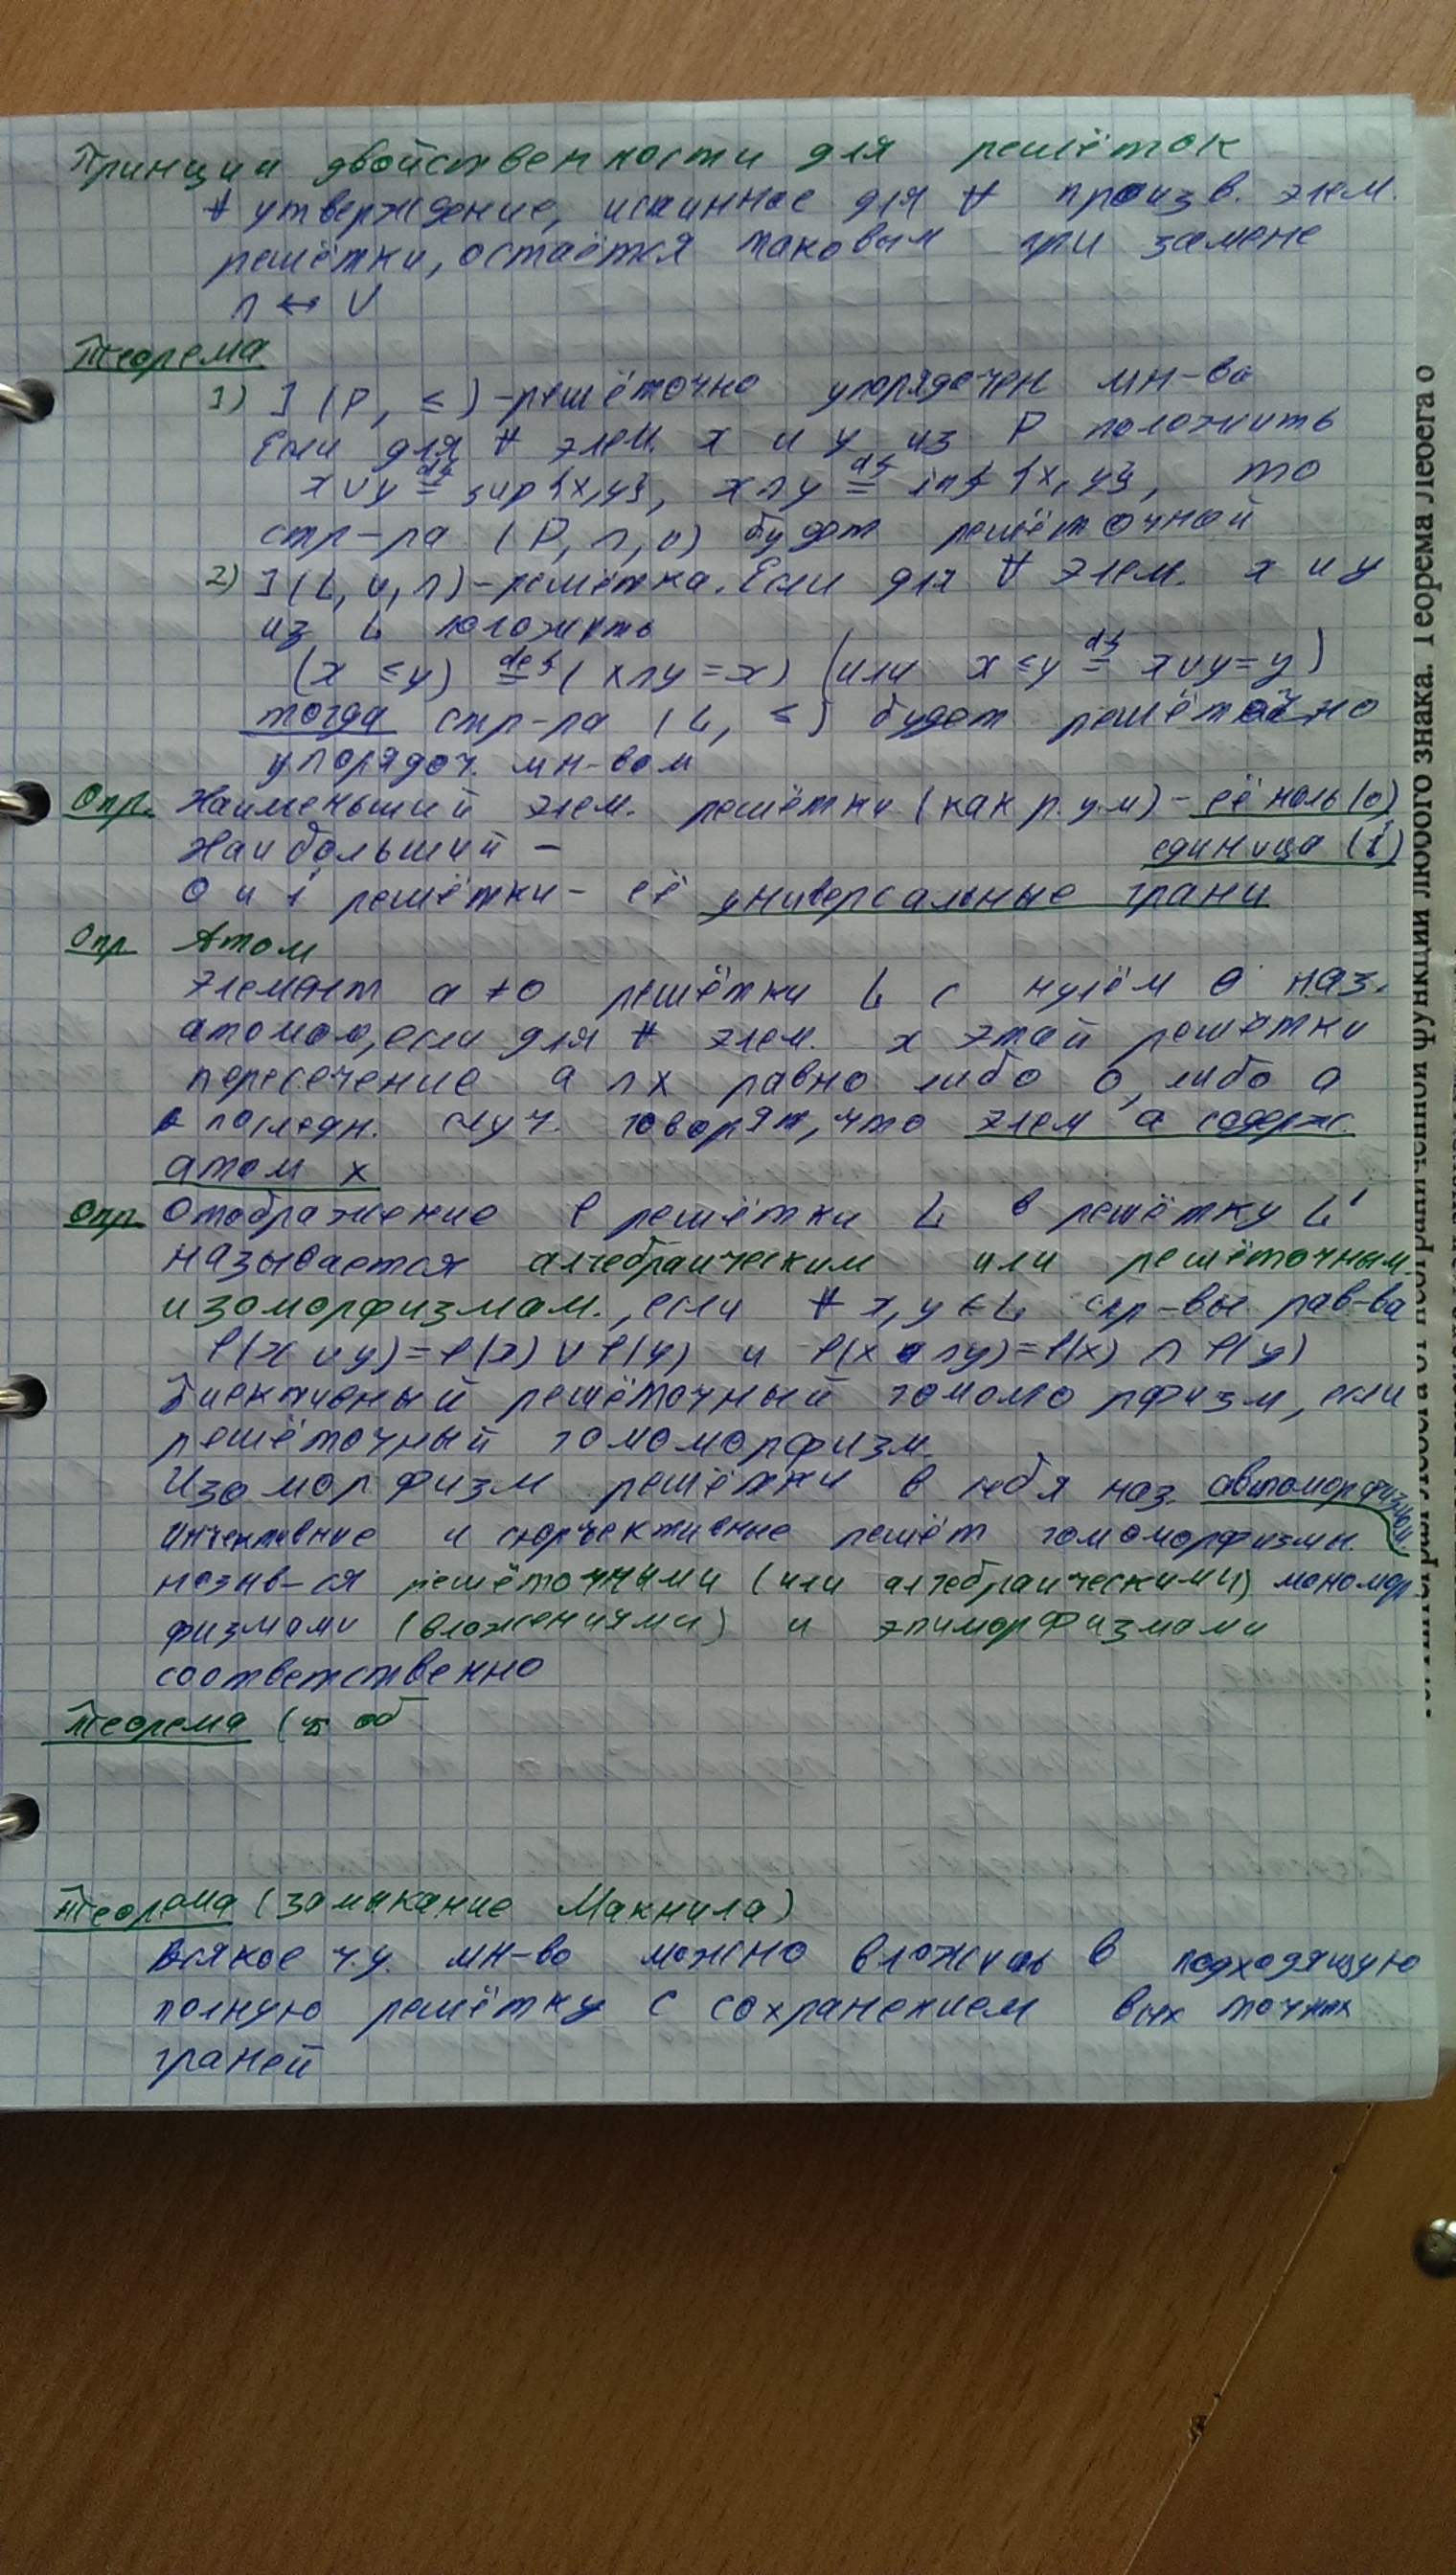 Принцип двойственности для решёток
∀ утверждение, истинное для ∀ произв. элем.
решётки, остаётся таковым при замене
∩ ↔ ∪
Теорема
1) ] (P, ≤) - решёточно упорядочен мн-во
Если для ∀ элем. x и y из P положить
x∪y ≝ sup{x,y}, x∩y ≝ inf{x,y}, то
стр-ра (P, ∩, ∪) будет решёточной
2) ] (L, ∪, ∩) - решётка. Если для ∀ элем. x и y
из L положить
(x ≤ y) ≝ (x∩y = x) (или x ≤ y ≝ x∪y = y)
тогда стр-ра (L, ≤) будет решёточно
упорядоч. мн-вом
Опр. Наименьший элем. решётки (как р.у.м) - её ноль (0)
Наибольший - единица (1)
0 и 1 решётки - её универсальные грани
Опр Атом
Элемент a ≠ 0 решётки L с нулём 0 наз.
атомом, если для ∀ элем. x этой решётки
пересечение a ∩ x равно либо 0, либо a
в последн. случ. говорят, что элем a содерж.
атом x
Опр Отображение φ решётки L в решётку L'
называется алгебраическим или решёточным
изоморфизмам., если ∀ x, y ∈ L спр-вы рав-ва
φ(x ∪ y) = φ(x) ∪ φ(y) и φ(x ∩ y) = φ(x) ∩ φ(y)
Биективный решёточный гомоморфизм, если
решёточный гомоморфизм
Изоморфизм решётки в себя наз. автоморфизмом.
Инъективные и сюръективные решёт гомоморфизмы
назыв-ся решёточными (или алгебраическими) мономор
физмами (вложениями) и эпиморфизмами
соответственно
Теорема ( об
Теорема (замыкание Макнила)
Всякое ч.у. мн-во можно вложить в подходящую
полную решётку с сохранением всех точных
граней
от неограниченной функции любого знака. Теорема Лебега о